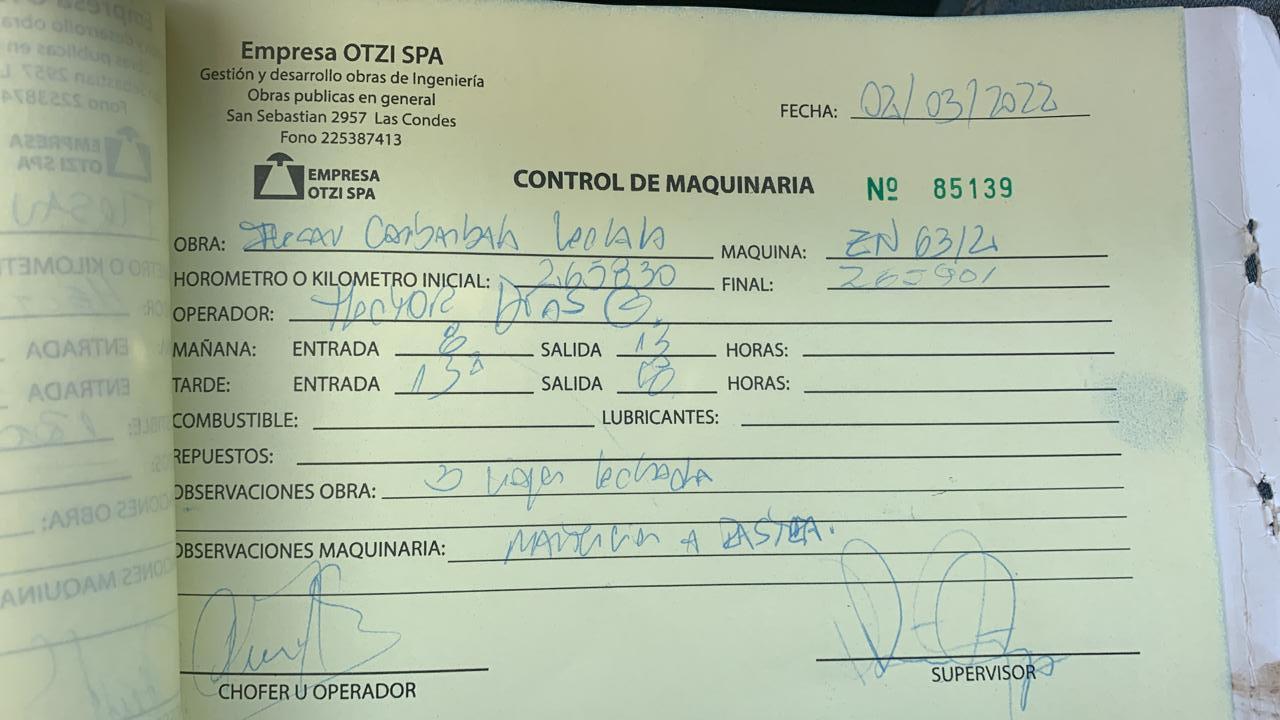 Empresa OTZI SPA
Gestión y desarrollo obras de Ingeniería
Obras publicas en general
San Sebastian 2957 Las Condes
Fono 225387413
FECHA: 02/03/2022
EMPRESA
OTZI SPA
CONTROL DE MAQUINARIA Nº 85139
OBRA: MAQUINA: ZN 6312
HOROMETRO O KILOMETRO INICIAL: 265830 FINAL: 265901
OPERADOR: Hector Dias G.
MAÑANA: ENTRADA 8 SALIDA 13 HORAS:
TARDE: ENTRADA 13 SALIDA 18 HORAS:
COMBUSTIBLE: LUBRICANTES:
REPUESTOS:
OBSERVACIONES OBRA: 3 viajes lechada
OBSERVACIONES MAQUINARIA: A
CHOFER U OPERADOR
SUPERVISOR